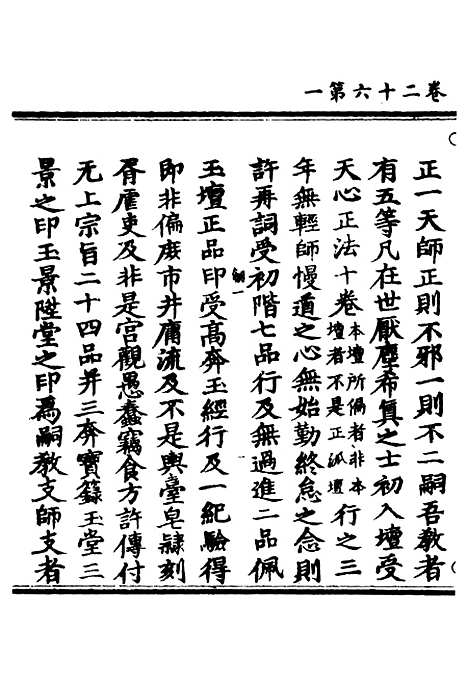 卷二十六第一
正一天師正則不邪一則不二嗣吾教者
有五等凡在世厭塵希真之士初入壇受
天心正法十卷本壇所偹者非本壇者不是正派壇行之三
年無輕師慢道之心無始勤終怠之念則
許再詞受初階七品行及無過進二品佩
玉壇正品印受高奔玉經行及一紀驗得
即非偏废市井庸流及不是輿臺皂隷刻
胥虐吏及非是宫觀愚蠢竊食方許傳付
无上宗旨二十四品并三奔寶籙玉堂三
景之印玉景陞堂之印爲嗣教支師支者